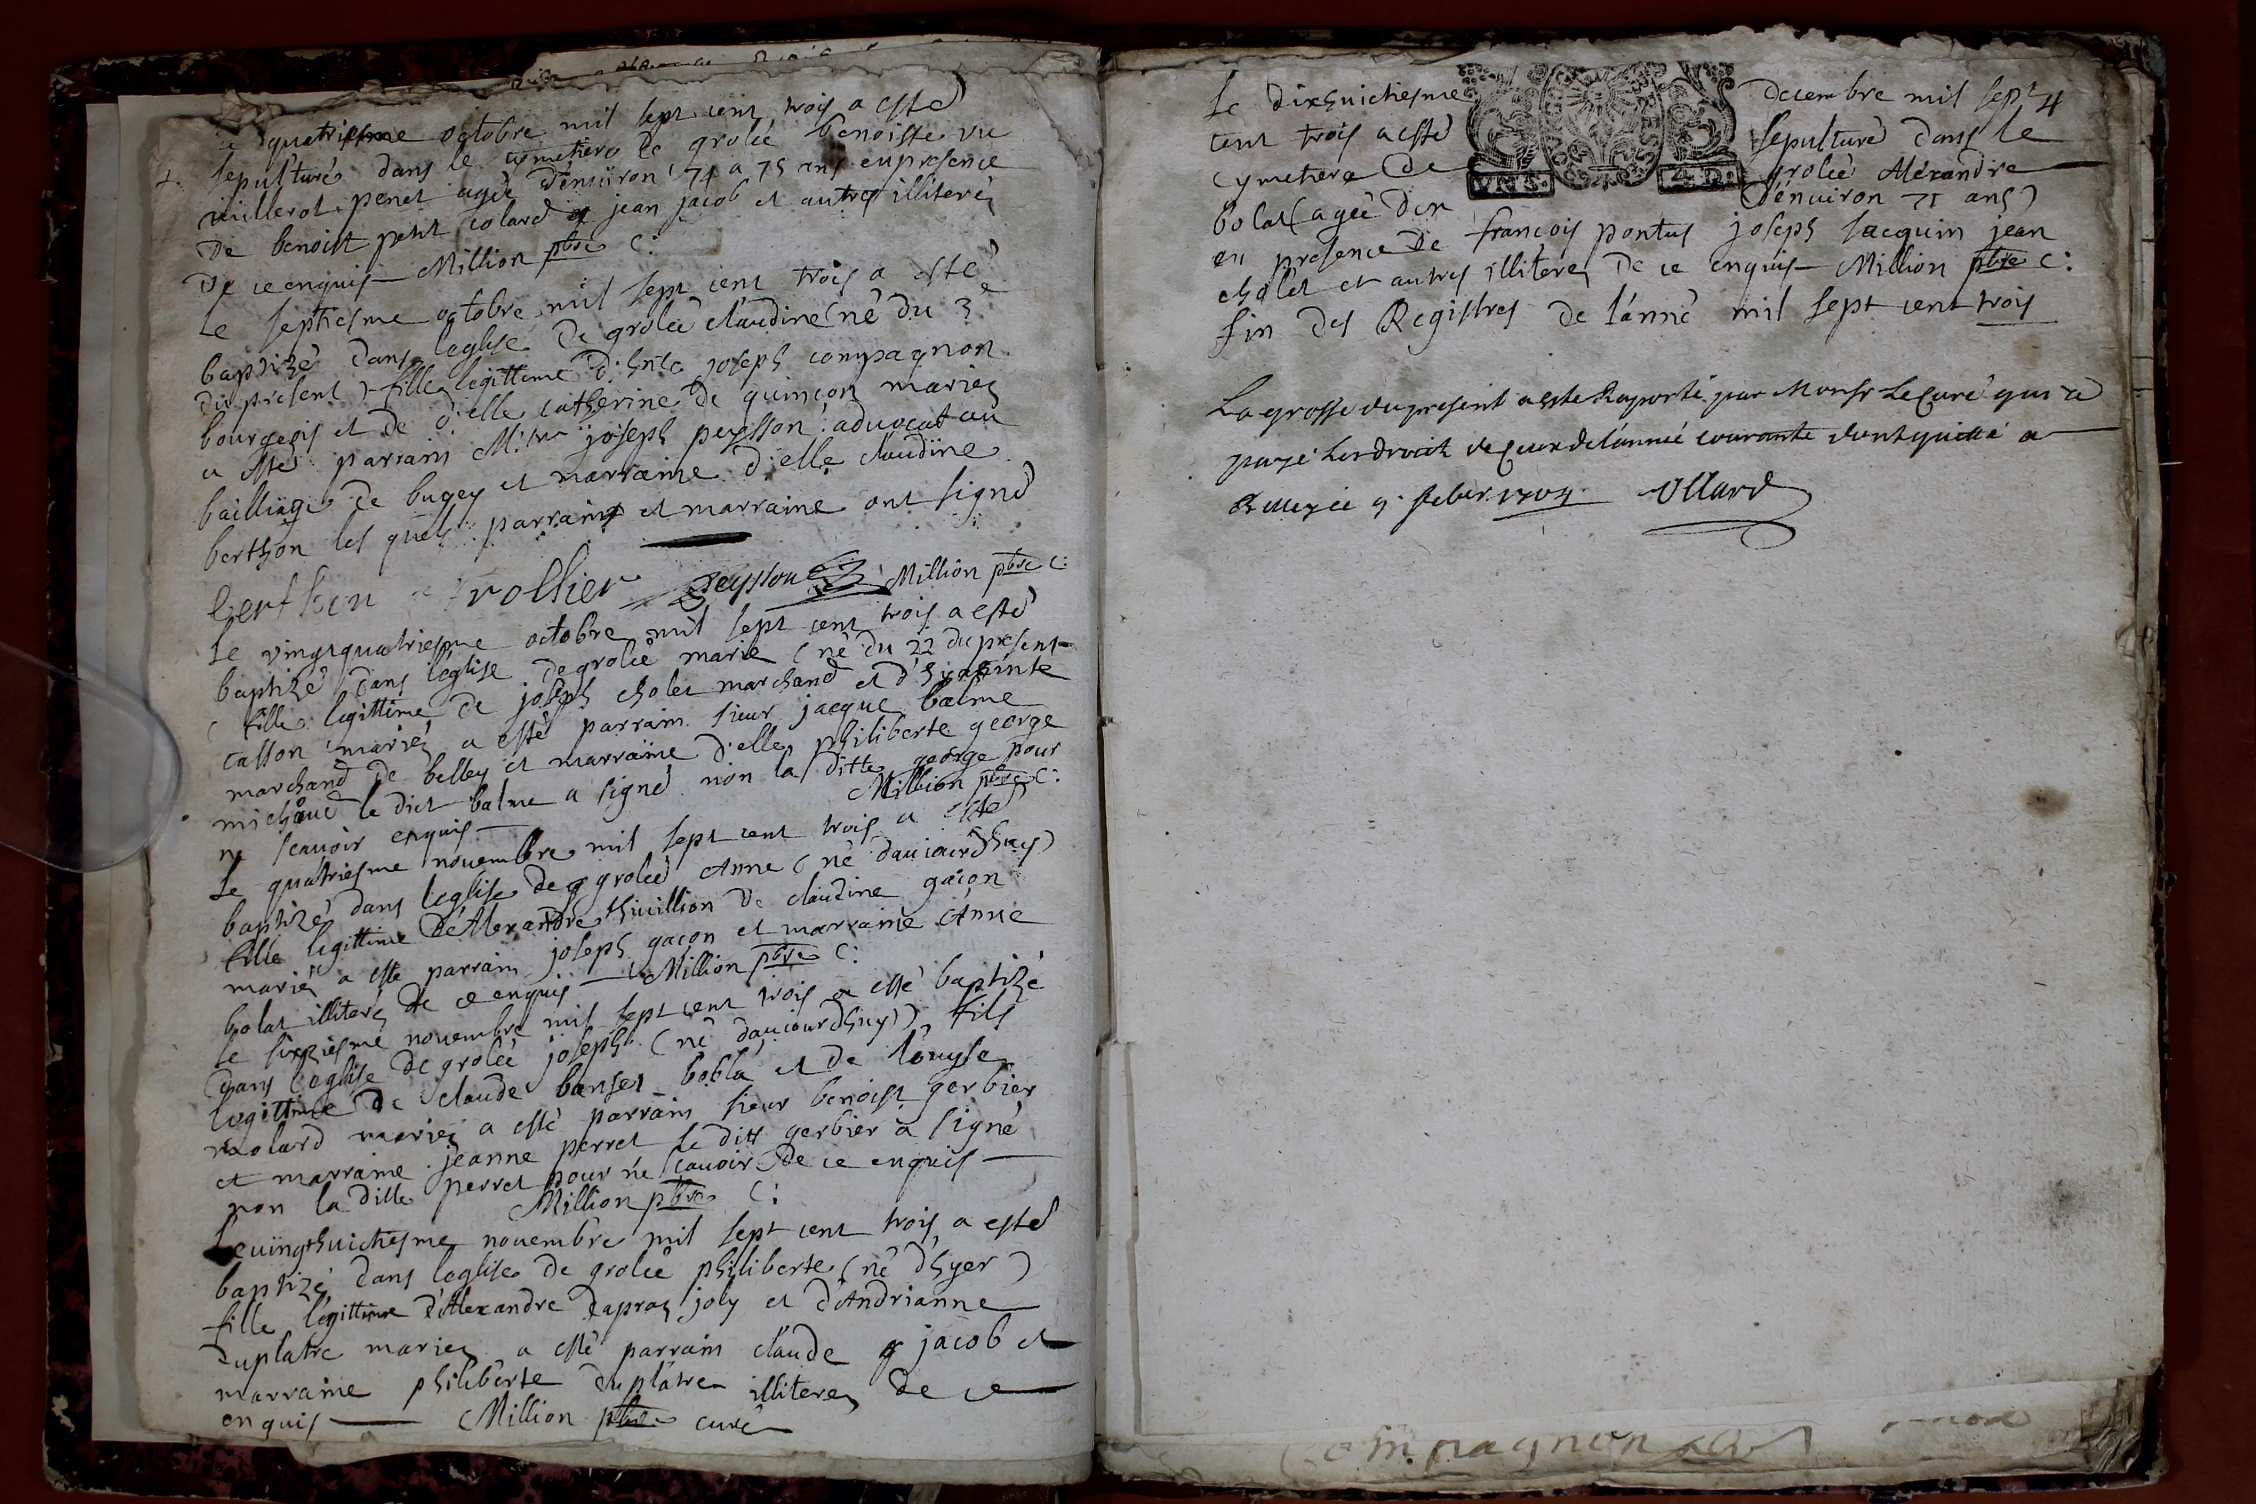 quatriesme octobre mil sept cent trois a esté
sepulturé dans le cymetiere de grolée benoiste vu
millerot penet agée d'enuiron 74 a 75 ans en presence
de benoist petit colard et jean jacob et autres illiterés
de ce enquis Million pbre C:
le septiesme octobre mil sept cent trois a esté
baptizé dans leglise de grolée claudine (né du 3e
du present) fille legittime d'hnle joseph compagnon
bourgeois et de d'elle catherine de quinçon mariez
a esté parrain Mitre joseph peysson aduocat au
bailliage de bugey et marraine d'elle claudine
berthon les quels parrains et marraine ont signé
berthon trollier peysson Million pbre C:
le vingtquatriesme octobre mil sept cent trois a esté
baptizé dans l'église de grolée marie (né du 22 du present
(fille legittime de joseph cholet marchand et d'hyacinte
casson mariez a esté parrain sieur jacque balme
marchand de belley et marraine d'elle philiberte george
michaud le dict balme a signé non la ditte george pour
ne scauoir enquis Million pbre C:
le quatriesme nouembre mil sept cent trois a esté
baptizé dans leglise de grolée Anne (né d'aujourdhuy)
fille legittime d'Alexandre thuillion de claudine gacon
mariez a esté parrain joseph gacon et marraine Anne
bolat illiterés de ce enquis Million pbre C:
le sixziesme nouembre mil sept cent trois a esté baptizé
dans leglise de grolée joseph (né daujourdhuy) fils
legittime de claude banset bobla et de louyse
molard mariez a esté parrain sieur benoist gerbier
et marraine jeanne perret le ditt gerbier a signé
non la ditte perret pour ne scauoir de ce enquis
Million pbre C:
le vingthuictiesme nouembre mil sept cent trois a esté
baptizé dans leglise de grolée philiberte (né d'hyer)
fille legittime d'Alexandre dapraz joly et d'Andrianne
duplatre mariez a esté parrain claude jacob et
marraine philiberte duplatre illiterez de ce
enquis Million pbre curé
4
le dixhuictiesme decembre mil sept
cent trois a esté sepulturé dans le
cymetiere de grolée Alexandre
bolat (agée den d'enuiron 75 ans)
VNS. 4 D.
en presence de françois pontus joseph jacquin jean
cholet et autres illiterez de ce enquis Million pbre C:
fin des Registres de l'anné mil sept cent trois
La grosse du present a esté Raporté par Monsr Le Curé qui a
payé les droit de ceux de l'année courante dont quitte a
9 febur. 1704 Ullard
Compagnon